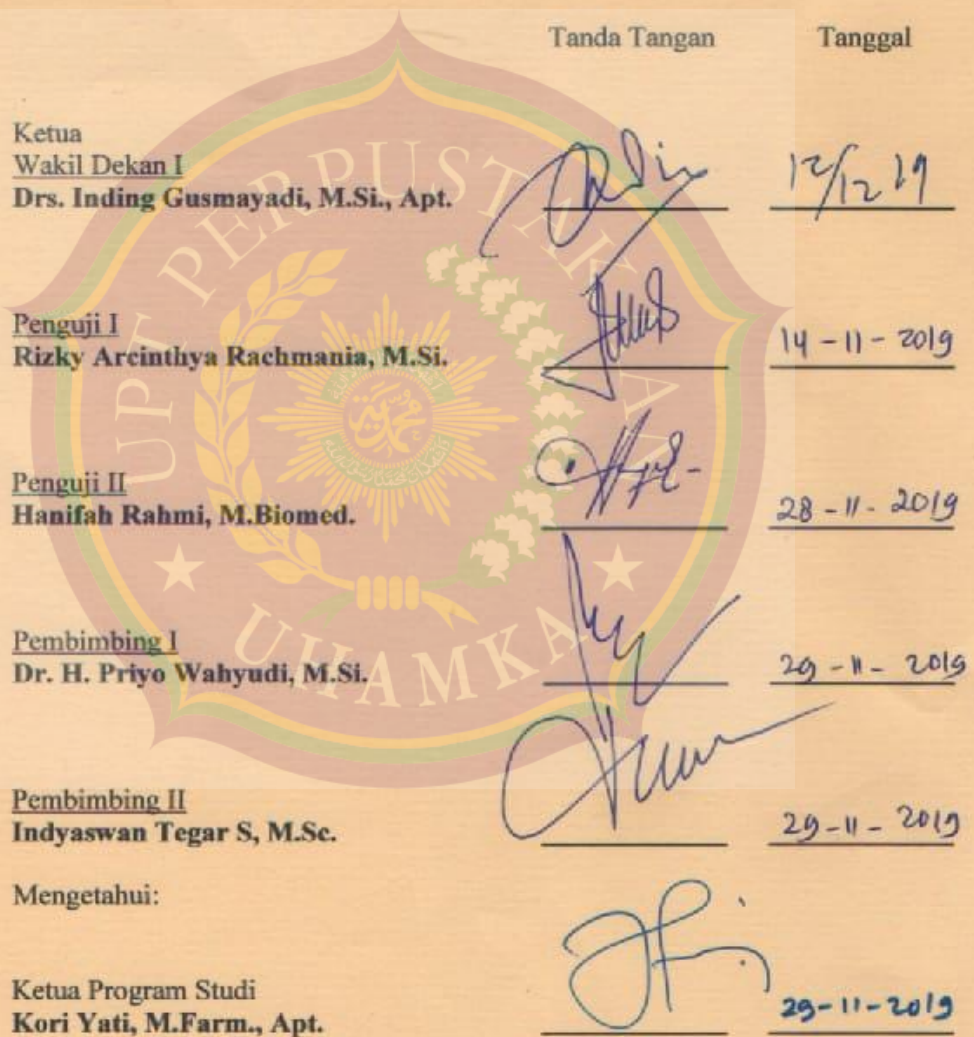 Tanda Tangan Tanggal
Ketua
Wakil Dekan I
Drs. Inding Gusmayadi, M.Si., Apt. 12/12 19
Penguji I
Rizky Arcinthya Rachmania, M.Si. 14-11-2019
Penguji II
Hanifah Rahmi, M.Biomed. 28-11-2019
Pembimbing I
Dr. H. Priyo Wahyudi, M.Si. 29-11-2019
Pembimbing II
Indyaswan Tegar S, M.Sc. 29-11-2019
Mengetahui:
Ketua Program Studi
Kori Yati, M.Farm., Apt. 29-11-2019
UPT PERPUSTAKAAN
UHAMKA
محمدية